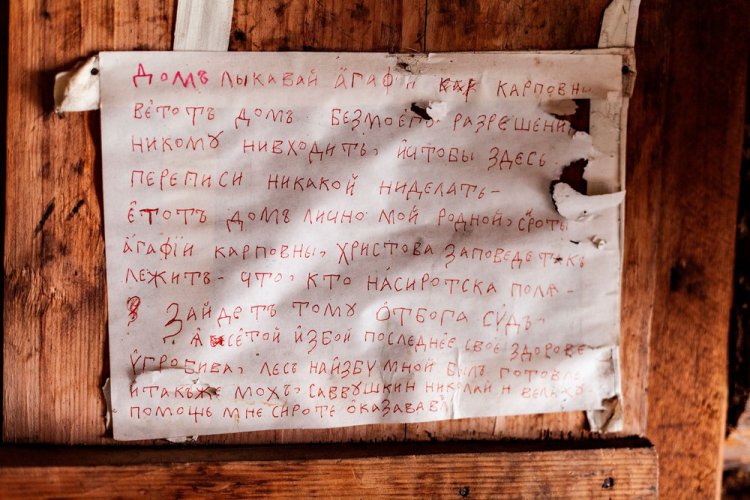 Домъ лыкавай а҆гафїи карповны
ве҆тотъ домъ безмоего разрешени
никому нивходить, и҆чтобы здесь
переписи никакой ниделать-
е҆тотъ домъ лично мой родной, си҆роты
а҆гафїи карповны, христова заповедь такъ
лежитъ- что, кто на́сиротска поля-
зайдетъ тому о҆тбога су́дъ-
а҆ се҆той и҆збой последнее свое здоровье
у҆гробива, лесъ наизбу мной былъ готовле
и҆такъже мохъ, саввушкин николай н
помощь мне сироте о҆казавав